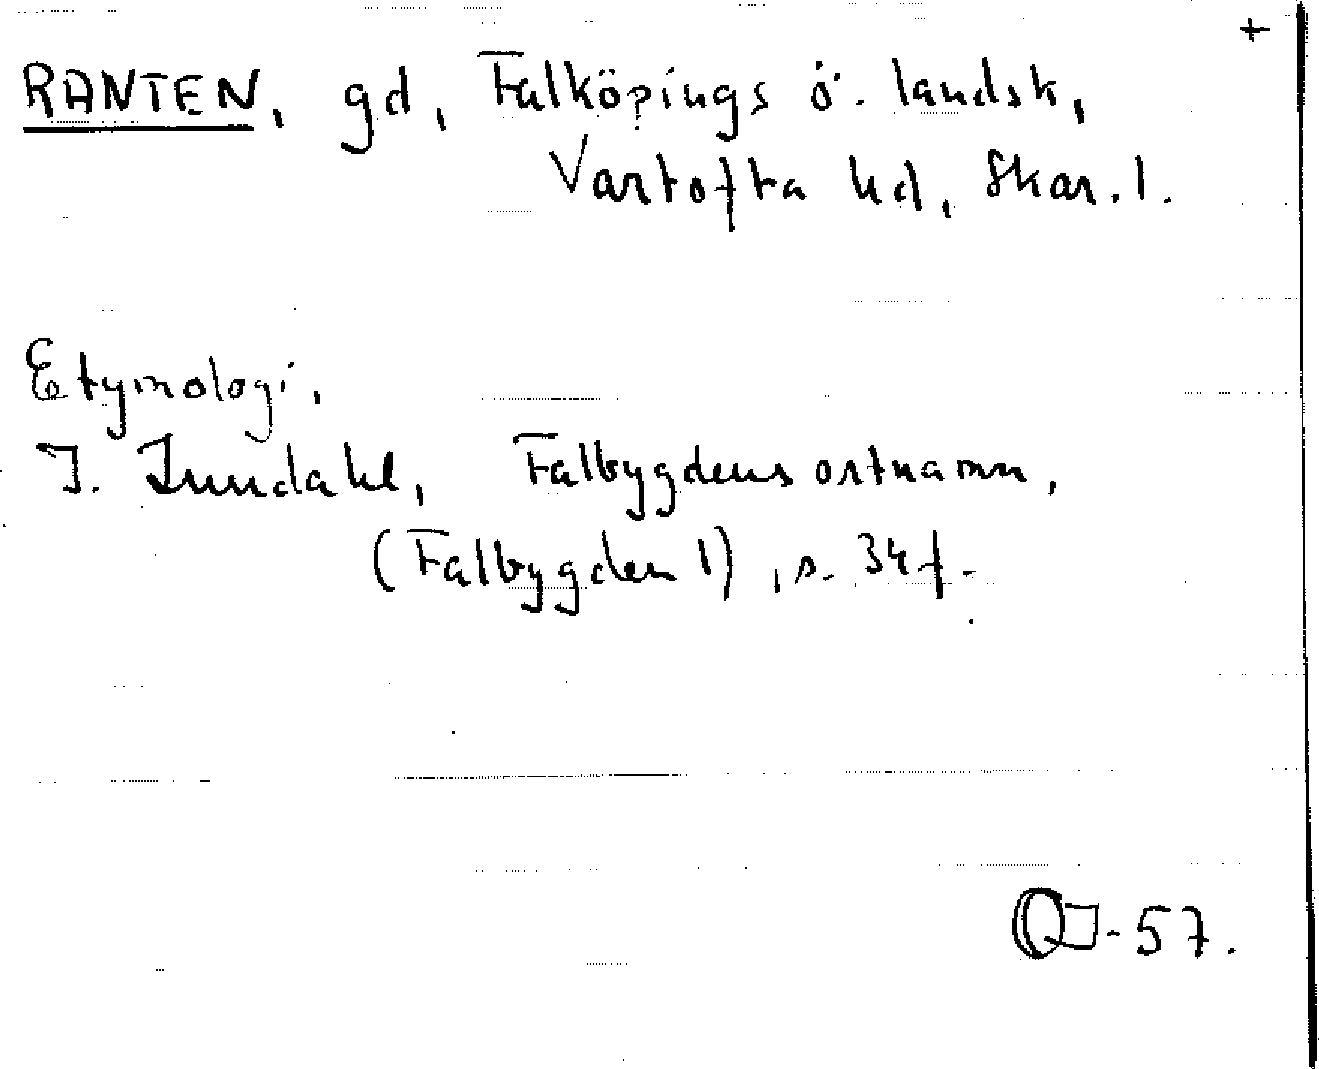 +
RANTEN, gd, Falköpings ö. landsk,
Vartofta hd, Skar. l.
Etymologi.
I. Lundahl, Falbygdens ortnamn,
(Falbygden 1), s. 34 f.
-57.